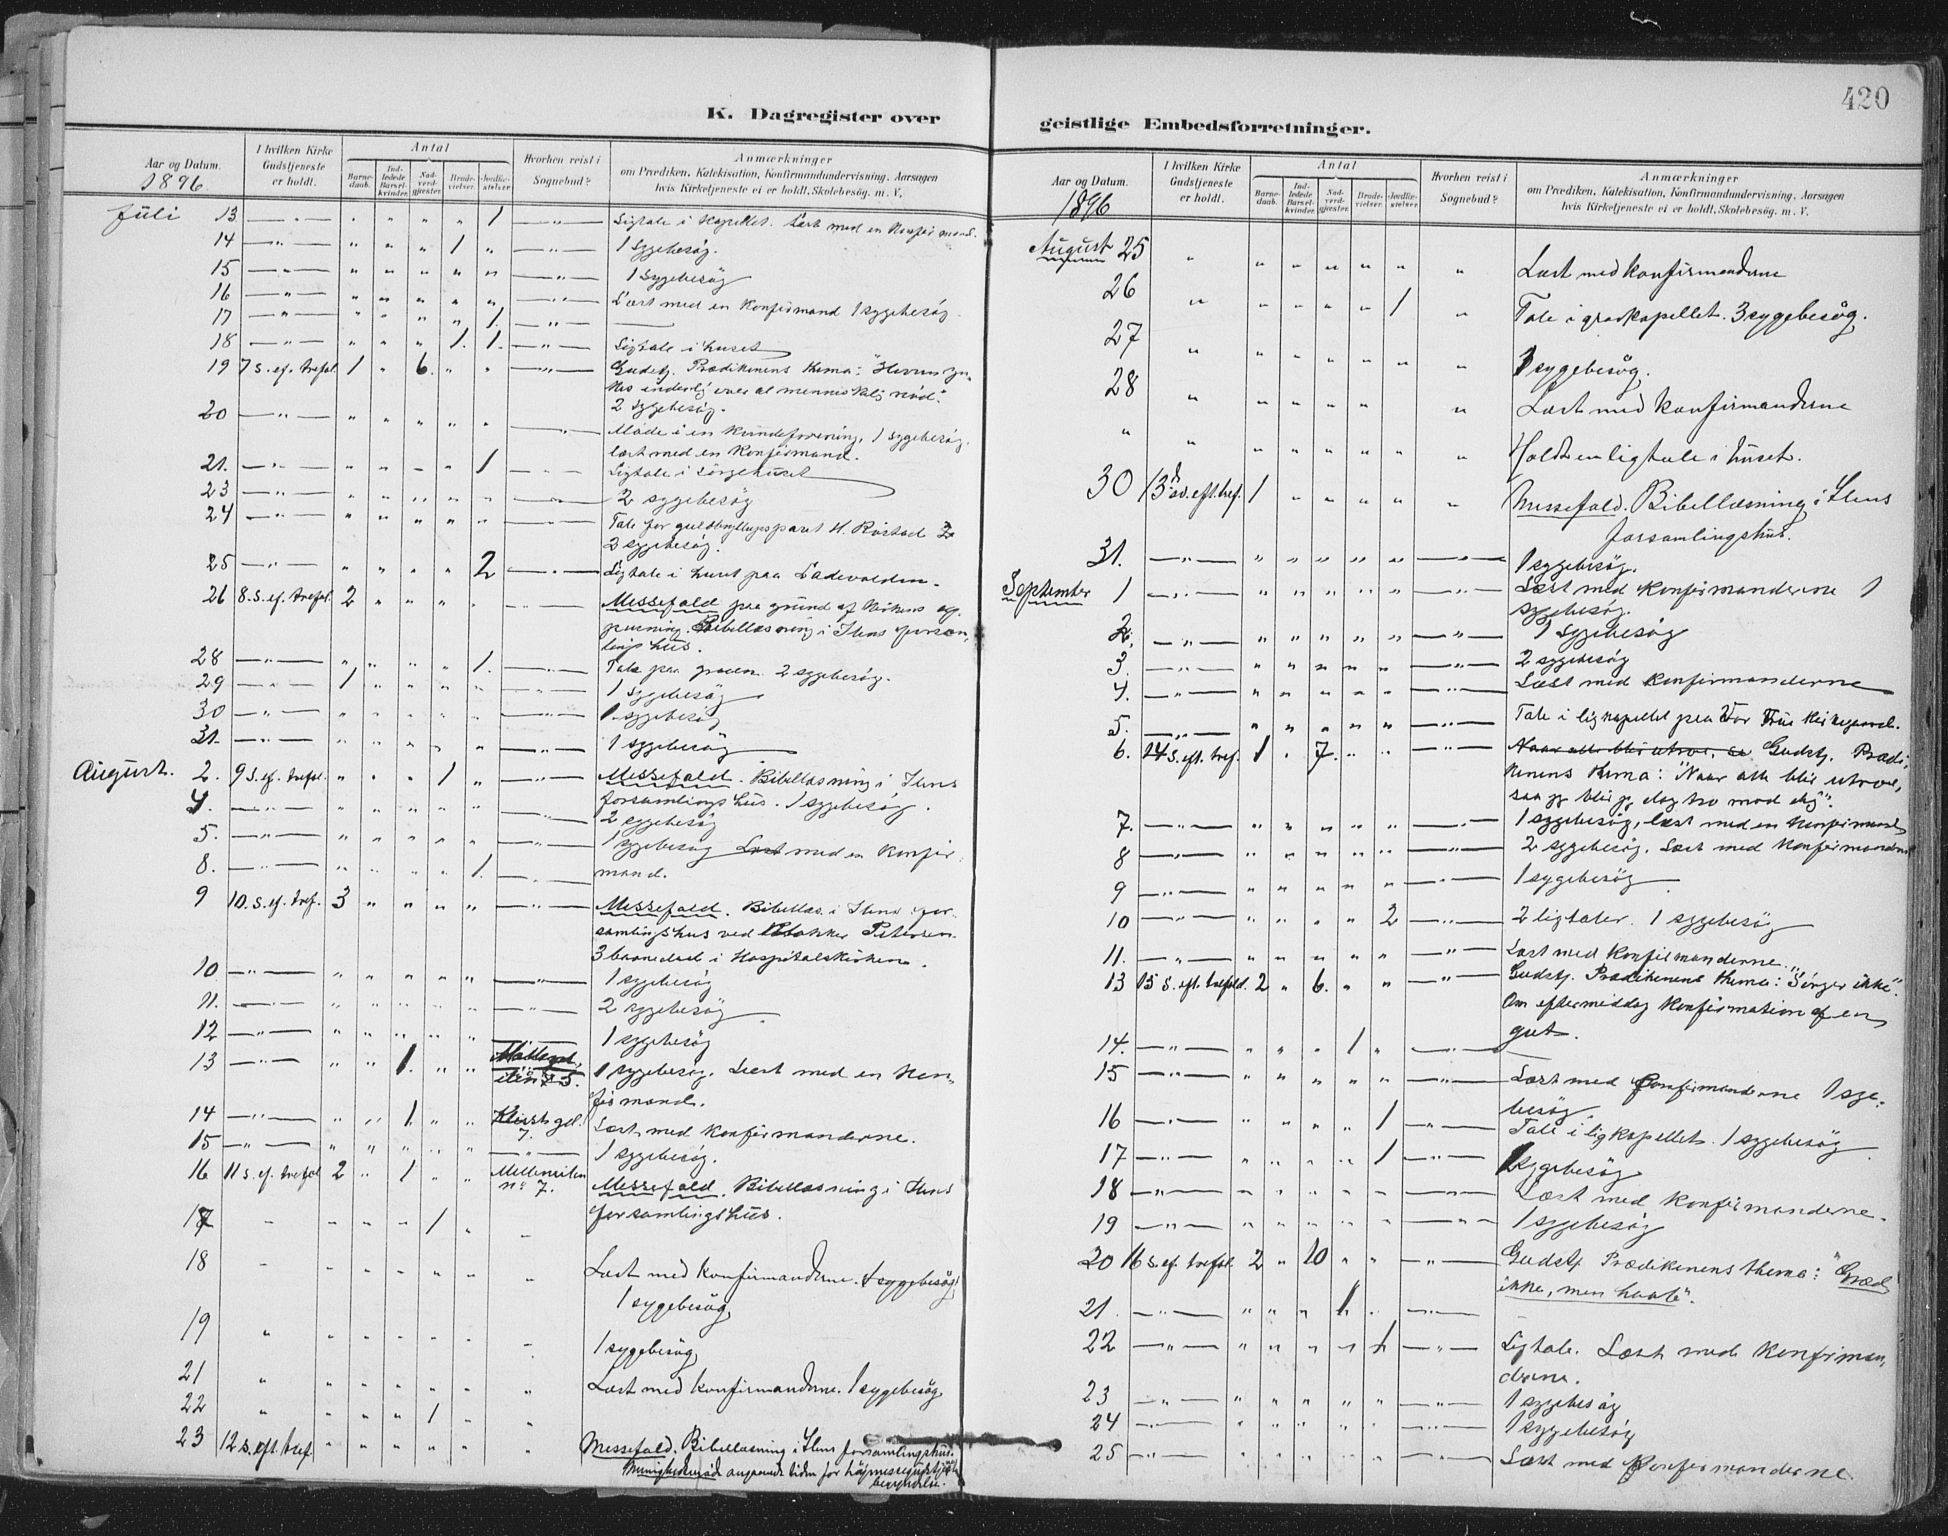 420
K. Dagregister over
geistlige Embedsforretninger.
Aar og Datum.
1896
I hvilken Kirke Gudstjeneste er holdt.
Antal
Barnedaab.
Indledede Barselkvinder.
Nadverdgjester.
Brudevielser.
Jordfæstelser.
Hvorhen reist i Sognebud?
Anmærkninger
om Prædiken, Katekisation, Konfirmandundervisning, Aarsagen
hvis Kirketjeneste ei er holdt, Skolebesøg. m. V.
Juli 13 — " — " " " " 1 — " — Ligtale i Kapellet. Læst med en Konfirmand.
14 — " — " " " 1 " — " — 1 sygebesög.
15 — " — " " " " " — " — 1 sygebesög
16 — " — " " " " " — " — Læst med en Konfirmand 1 sygebesög.
17 — " — " " " " 1. — " — ———
18 — " — " " " 1. 1. — " — Ligtale i huset
19 7 s. ef. trefol. 1 " 6. " " — " — Gudstj. Prædikenens thema: "Herren yn-
kes inderlig over al menneskelig nød".
2 sygebesög.
20 — " — " " " " " — " — Møde i en Kvindeforening, 1 sygebesög.
læst med en Konfirmand.
21. — " — " " " " 1 — " — Ligtale i sörgehuset
23 — " — " " " " " — " — 2 sygebesög
24 — " — " " " " " — " — Tale for guldbryllupsparet H. Röstad
2 sygebesög.
25 — " — " " " " 2 — " — Ligtale i huset paa Ladevolden.
26 8. s. ef. trefol. 2 " " " " — " — Messefald paa grund af Kirkens op-
pudsning. Bibellæsning i Ilens forsam-
lingshus.
28 — " — " " " " 1. — " — Tale paa graven. 2 sygebesög.
29 — " — 1 " " " " — " — 1 sygebesög
30 — " — " " " " " — " — 1. sygebesög
31. — " — " " " " " — " — 1 sygebesög
August. 2. 9 s. ef. trefol. " " " 1 " — " — Messefald. Bibellæsning i Ilens
forsamlingshus. 1 sygebesög.
4. — " — " " " " " — " — 2 sygebesög
5. — " — " " " " " — " — 1 sygebesög Læst med en Konfir-
mand.
8. — " — " " " " 1. — " —
9 10. s. ef. tref. 3 " " " " — " — Messefald. Bibellæs. i Ilens for-
samlingshus ved Klokker Petersen.
3 barnedaab i Hospitalskirken.
10 — " — " " " " " — " — 1 sygebesög
11. — " — " " " " " — " — 2 sygebesög
12 — " — " " " " " — " — 1 sygebesög
13 — " — " " 1. " " 1 sygebesög. Læst med en Kon-
firmand.
14 — " — " " 1. " " 7. Læst med Konfirmanderne.
15 — " — " " " " " " 1 sygebesög.
16 11 s. ef. trefol 2 " 1 " " Mellemilen
no 7. Messefald. Bibellæsning i Ilens
forsamlingshus.
17 " " " " 1 " "
18 " " " " " " " Læst med Konfirmanderne. 1 sygebesög
1 sygebesög
19 " " " " " " " 1 sygebesög
21 " " " " " " " Læst med Konfirmanderne. 1 sygebesög
22 " " " " 1 " "
23 12 s. eft. tref. " " " " " " Messefald. Bibellæsning i Ilens forsamlingshus.
Menighedsmøde angaaende tiden for höjmessegudstjenestens
begyndelse.
Aar og Datum.
1896
I hvilken Kirke Gudstjeneste er holdt.
Antal
Barnedaab.
Indledede Barselkvinder.
Nadverdgjester.
Brudevielser.
Jordfæstelser.
Hvorhen reist i Sognebud?
Anmærkninger
om Prædiken, Katekisation, Konfirmandundervisning, Aarsagen
hvis Kirketjeneste ei er holdt, Skolebesøg. m. V.
August 25 " " " " " " " Læst med konfirmanderne
26 " " " " " 1 " Tale i gravkapellet. 3 sygebesög.
27 " " " " " " " 1 sygebesög.
28 " " " " " " " Læst med konfirmanderne
" " " " " " " " Holdt en ligtale i huset.
30 13d s. eft. tref. 1 " " " " " Messefald. Bibellæsning i Ilens
forsamlingshus.
31. — " — " " " " " — " — 1 sygebesög.
September 1 — " — " " " " " — " — Læst med Konfirmanderne 1
sygebesög.
2. — " — " " " " " — " — 1 sygebesög
3. — " — " " " " " — " — 2 sygebesög
4. — " — " " " " " — " — Læst med Konfirmanderne
5. — " — " " " " " — " — Tale i ligkapellet paa Vor Frue Kirkegaard.
6. 14 s. eft. tref. 1 " 7. " " — " — Naar alle blir utroe, sa Gudstj. Prædi-
kenens thema: "Naar alle blir utroe,
saa jeg blir jeg dog tro mod dig".
7. — " — " " " " " — " — 1 sygebesög, læst med en Konfirmand
8 — " — " " " " " — " — 2 sygebesög. Læst med Konfirmanderne
9 — " — " " " " " — " — 1 sygebesög
10 — " — " " " " 2 — " — 2 ligtaler. 1 sygebesög
11. — " — " " " " " — " — Læst med Konfirmanderne.
13 15 s. eft. trefold. 2 " 6. " " — " — Gudstj. Prædikenens thema: "Sörger ikke".
Om eftermiddag Konfirmation af en
gut.
14. — " — " " " 1 " — " —
15 — " — " " " " " — " — Læst med Konfirmanderne 1 syge-
besög.
16 — " — " " " " 1 — " — Tale i ligkapellet. 1 sygebesög
17 — " — " " " " 1 — " — 1 sygebesög
18 — " — " " " " " — " — Læst med Konfirmanderne.
19 — " — " " " " " — " — 1 sygebesög
20 16 s. ef. trefol. 2 " 10 " " — " — Gudstj. Prædikenens thema: "Græd
ikke, men haab".
21. — " — " " " 1 " — " —
22 — " — " " " " 1 — " — Ligtale. Læst med Konfirman-
derne.
23 — " — " " " " " — " — 1 sygebesög
24 — " — " " " " " — " — 1 sygebesög
25 — " — " " " " " — " — Læst med Konfirmanderne